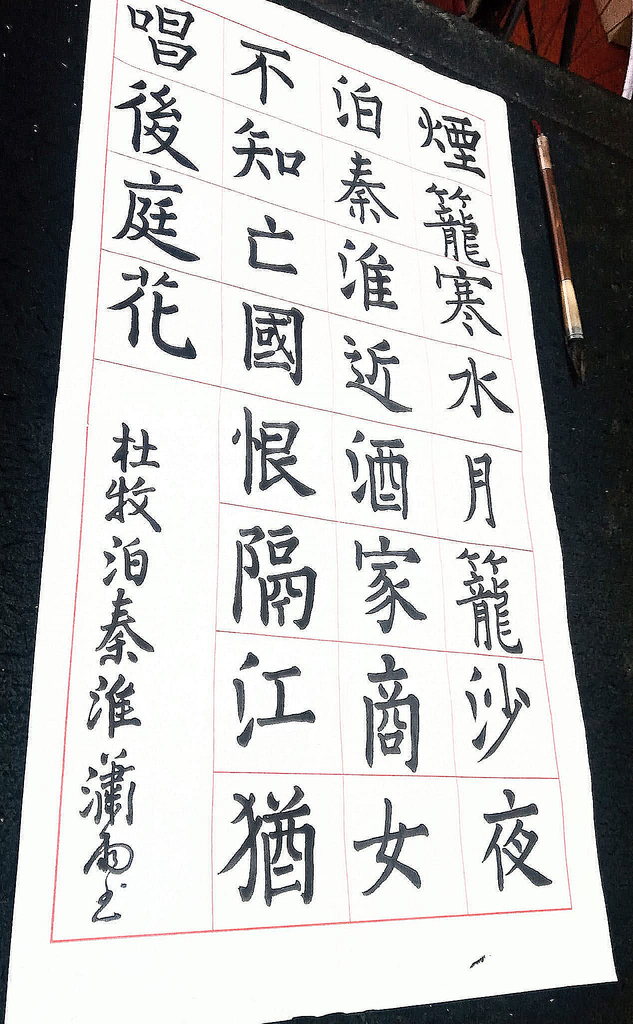 煙籠寒水月籠沙夜
泊秦淮近酒家商女
不知亡國恨隔江猶
唱後庭花
杜牧泊秦淮瀟雨书